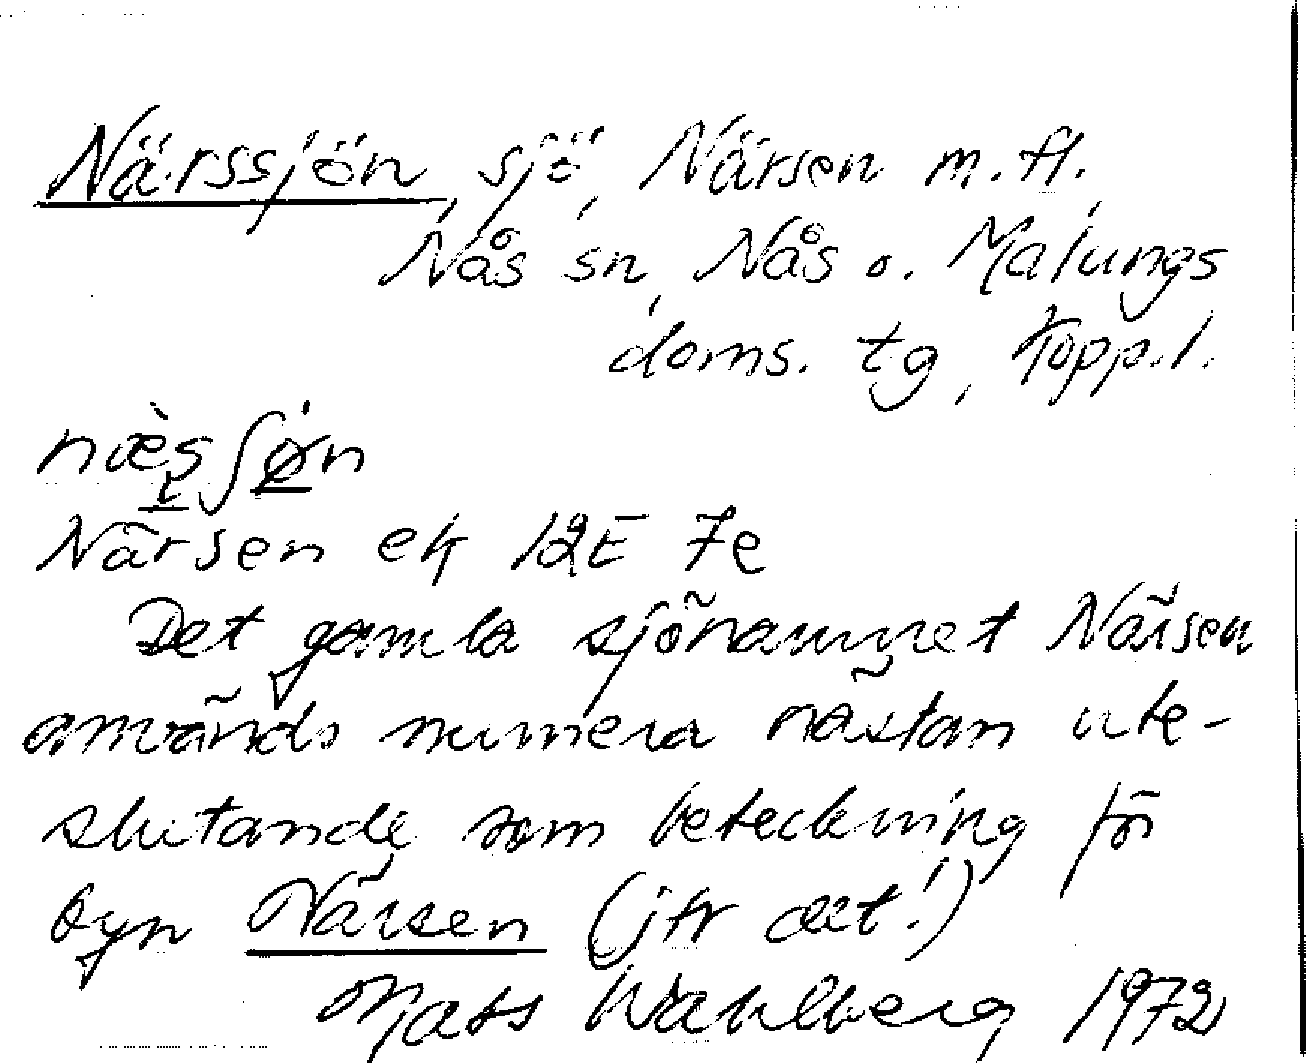 Närssjön, sjö, Närsen m.fl.,
Nås sn, Nås o. Malungs
doms. tg, Kopp.l.
Närsen ek 12E 7e
Det gamla sjönamnet Närsen
används numera nästan ute-
slutande som beteckning för
byn Närsen (jfr det!)
Mats Wahlberg 1972